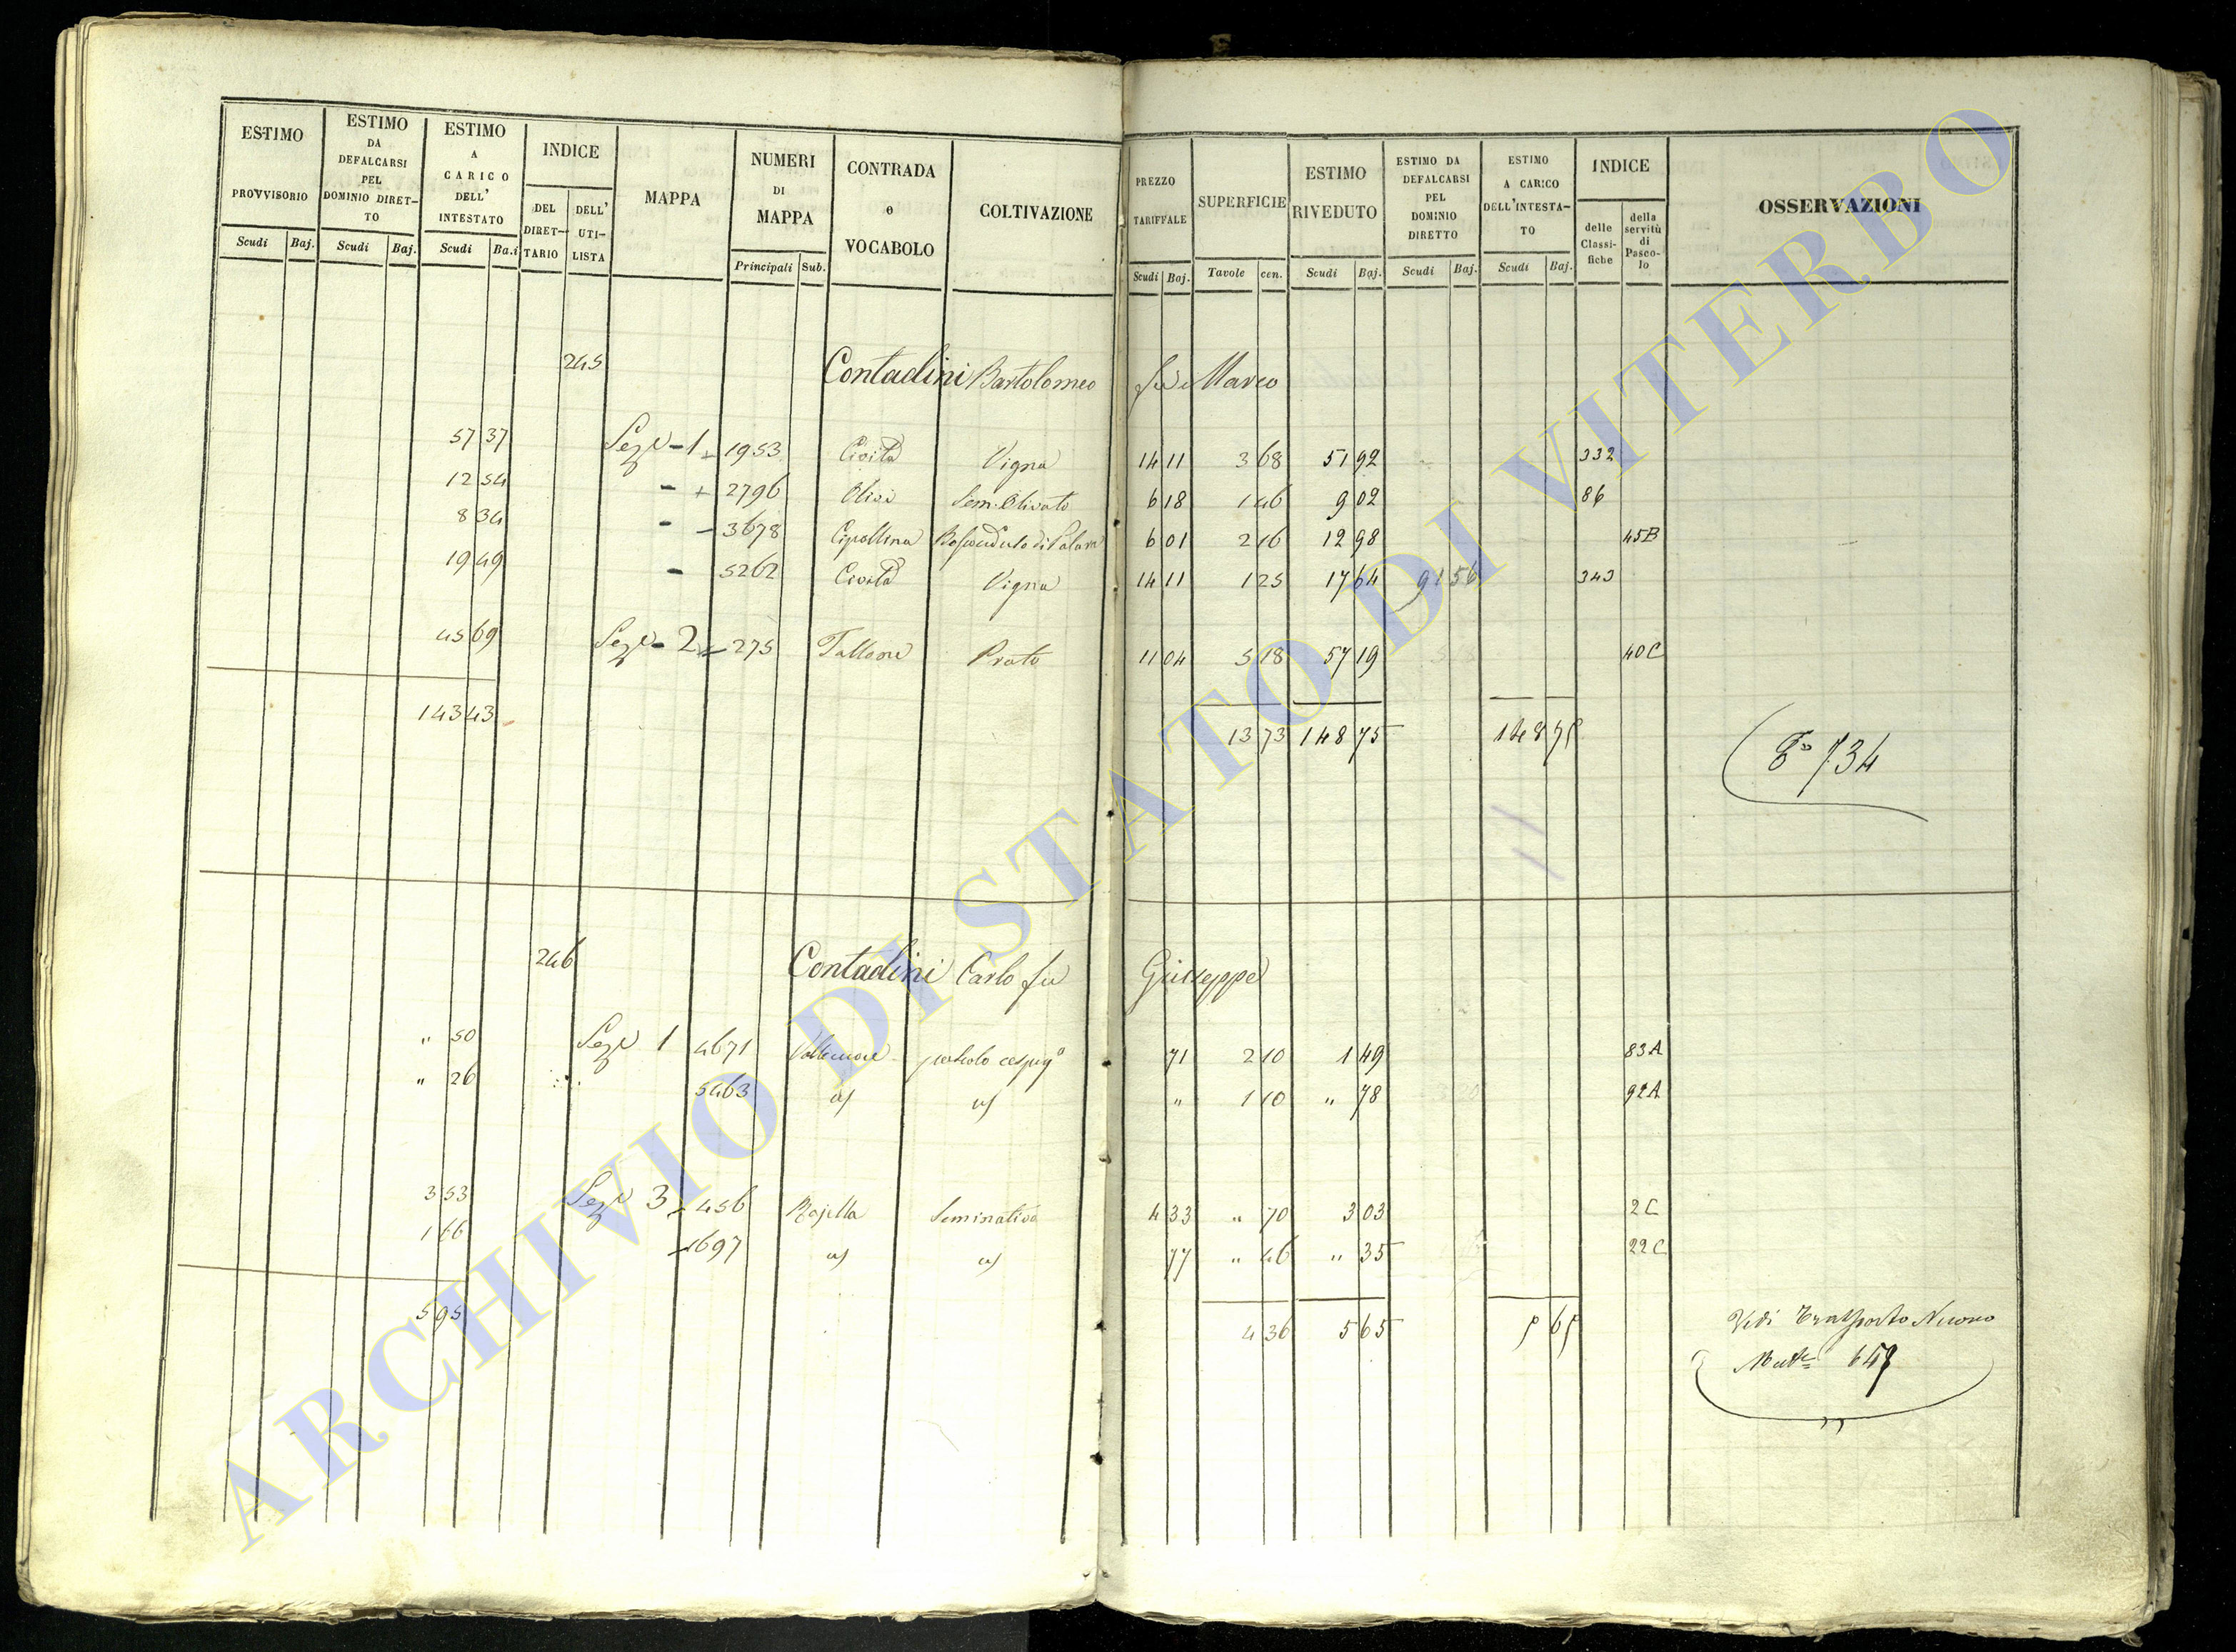 ESTIMO PROVVISORIO Scudi Baj.
ESTIMO DA DEFALCARSI PEL DOMINIO DIRET-TO Scudi Baj.
ESTIMO A CARICO DELL' INTESTATO Scudi Ba.i
INDICE DEL DIRET-TARIO DELL' UTI-LISTA
MAPPA
NUMERI DI MAPPA Principali Sub.
CONTRADA e VOCABOLO
COLTIVAZIONE
PREZZO TARIFFALE Scudi Baj.
SUPERFICIE Tavole cen.
ESTIMO RIVEDUTO Scudi Baj.
ESTIMO DA DEFALCARSI PEL DOMINIO DIRETTO Scudi Baj.
ESTIMO A CARICO DELL'INTESTA-TO Scudi Baj.
INDICE delle Classi-fiche della servitù di Pasco-lo
OSSERVAZIONI
245 Contadini Bartolomeo fu Marco
57 37 Sez.e - 1 1953 Civita Vigna 14 11 3 68 51 92 332
12 54 - + 2796 Olivi Sem. Olivato 6 18 1 46 9 02 86
8 34 - - 3678 Cipollina 6 01 2 16 12 98 45B
19 49 - 5262 Civita Vigna 14 11 1 25 17 64 91 56 343
45 69 Sez.e - 2 275 Tallone Prato 11 04 5 18 57 19 40C
143 43 13 73 148 75 148 75
734
246 Contadini Carlo fu Giuseppe
" 50 Sez.e 1 4671 pascolo cespug.o 71 2 10 1 49 83A
" 26 5463 " 1 10 " 78 92A
3 53 Sez.e 3 456 Rajella Seminativo 4 33 " 70 3 03 2C
1 66 1697 77 " 46 " 35 22C
5 95 4 36 5 65 5 65
Vedi Trasporto Nuovo
ARCHIVIO DI STATO DI VITERBO